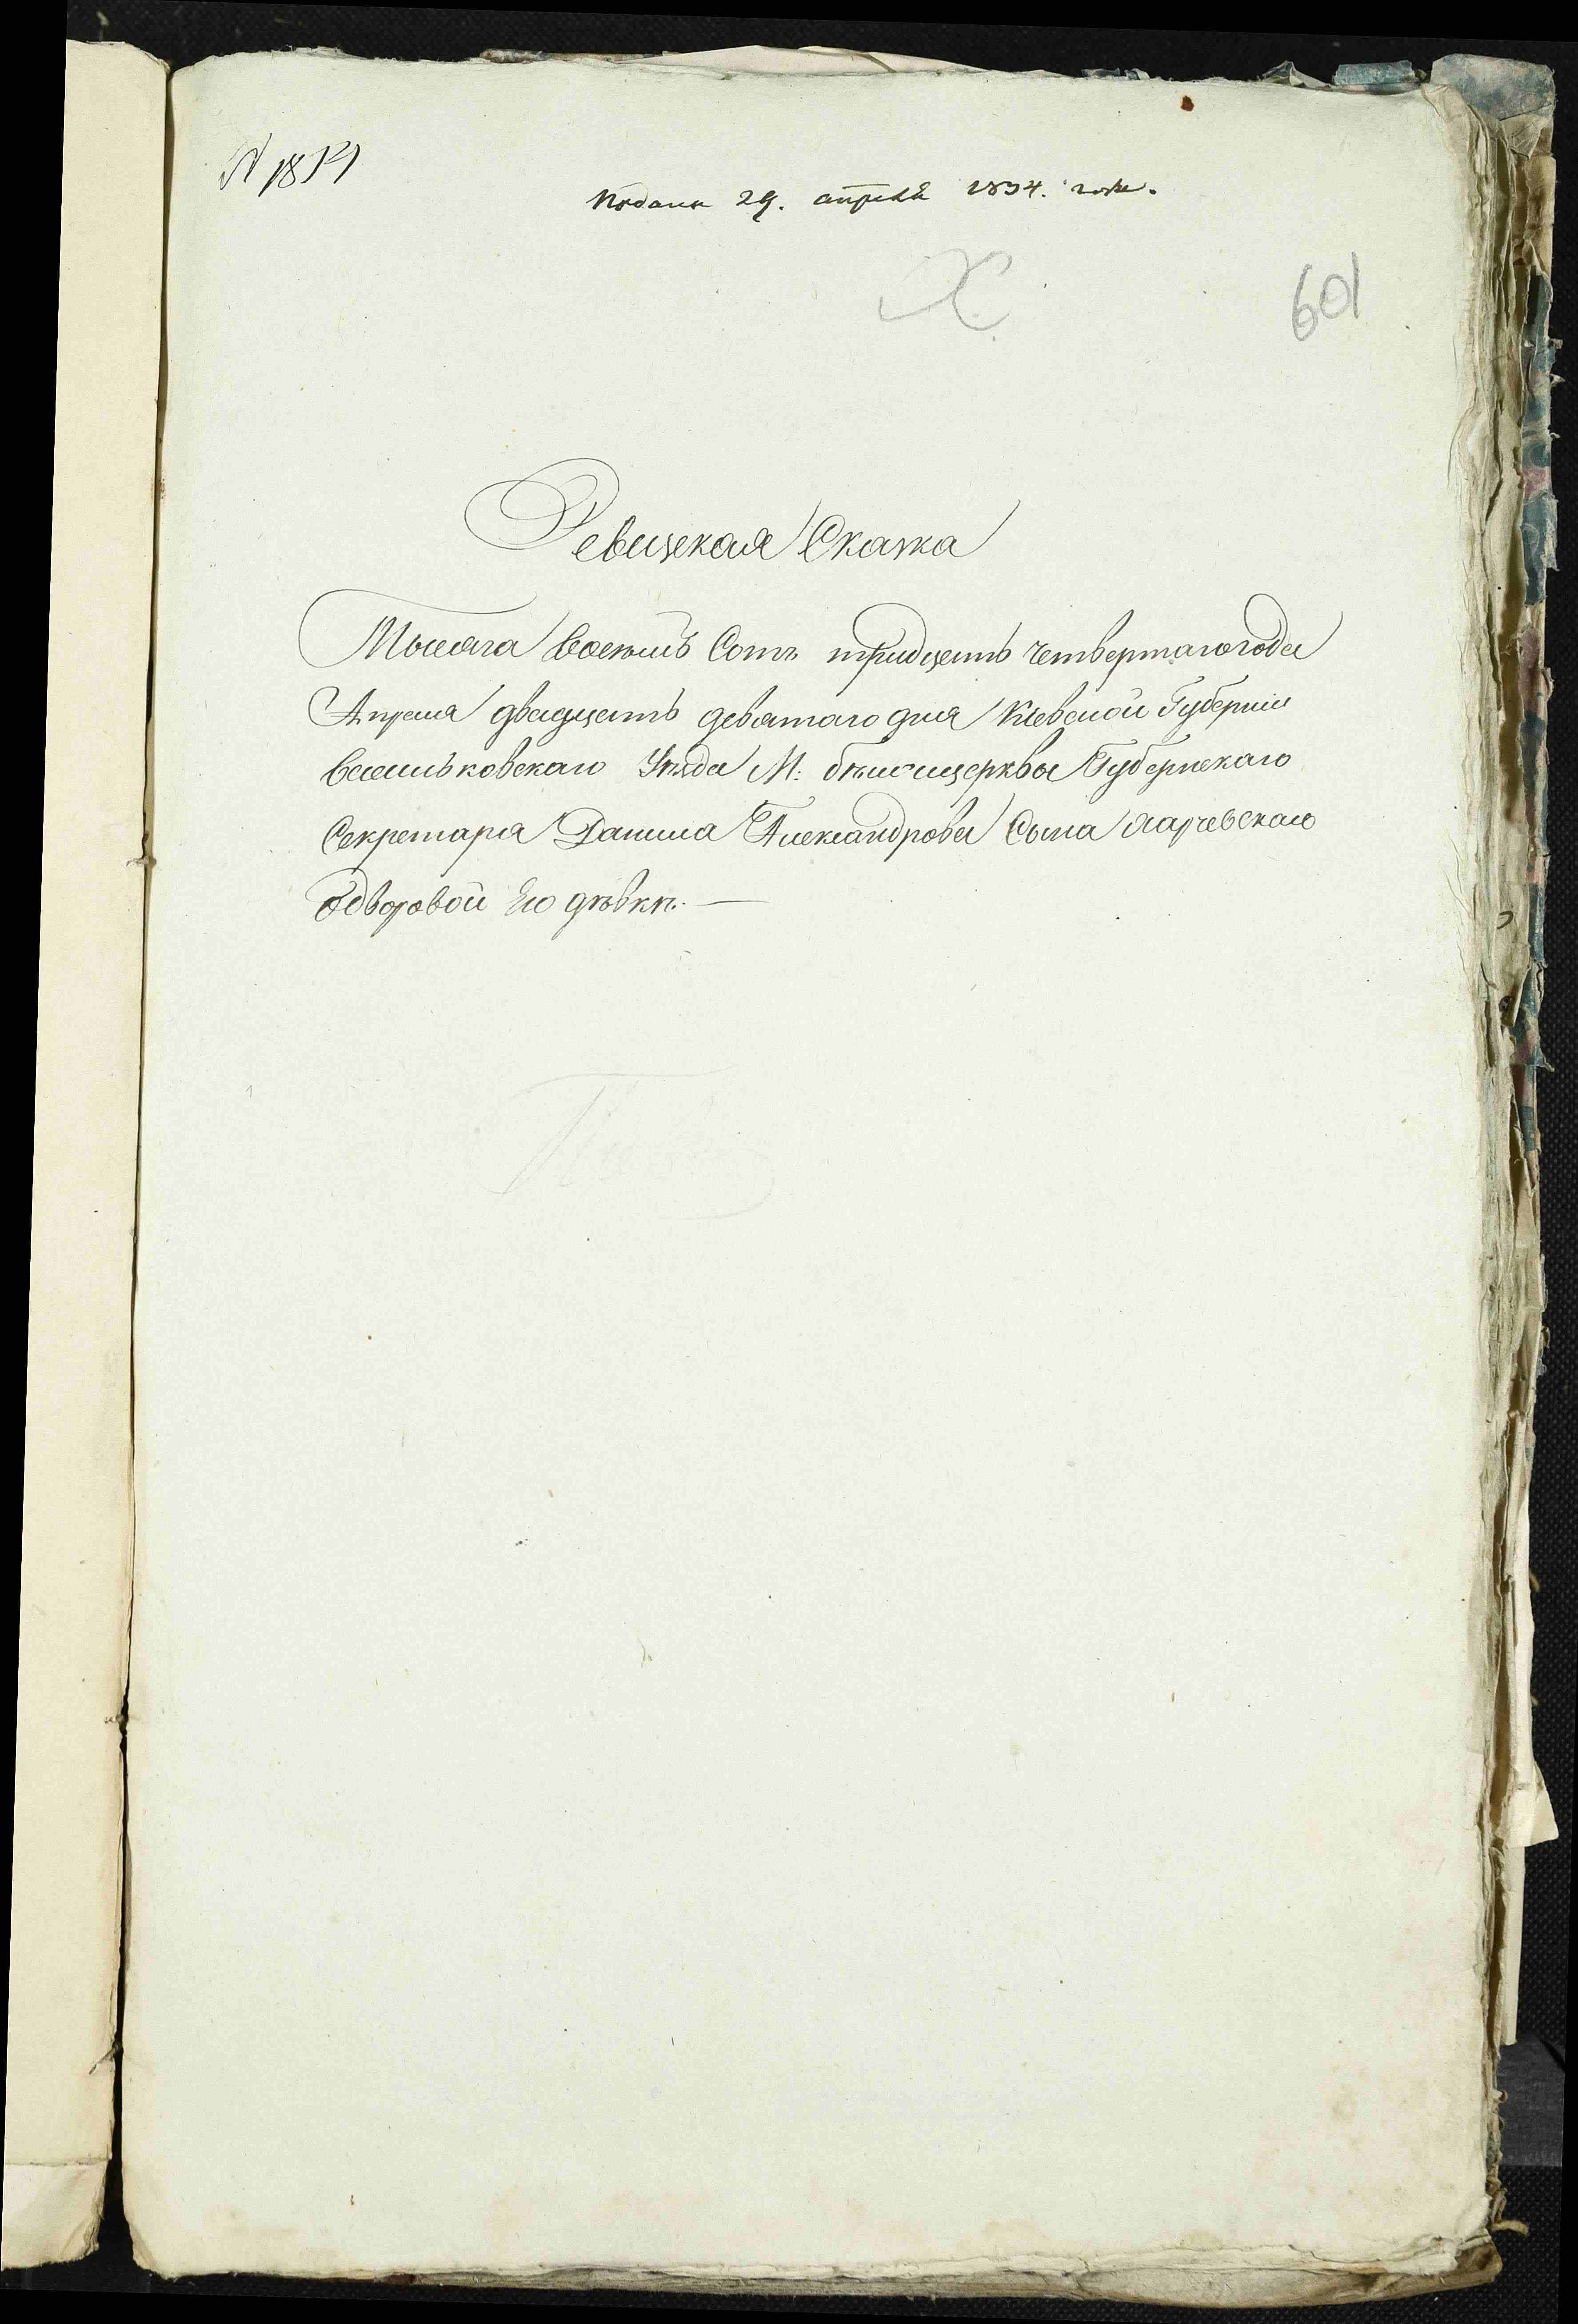 N 18
Подана 29. апреля 1834. года.
X
601
Ревизская Сказка
Тысяча восемь Сотъ тридцать четвертаго года
Апреля двадцать девятаго дня Киевской Губернии
Васильковскаго Уѣзда М: бѣлойцерквы Губернскаго
Секретаря Данила Александрова Сына
одворовой Его дѣвкѣ. —